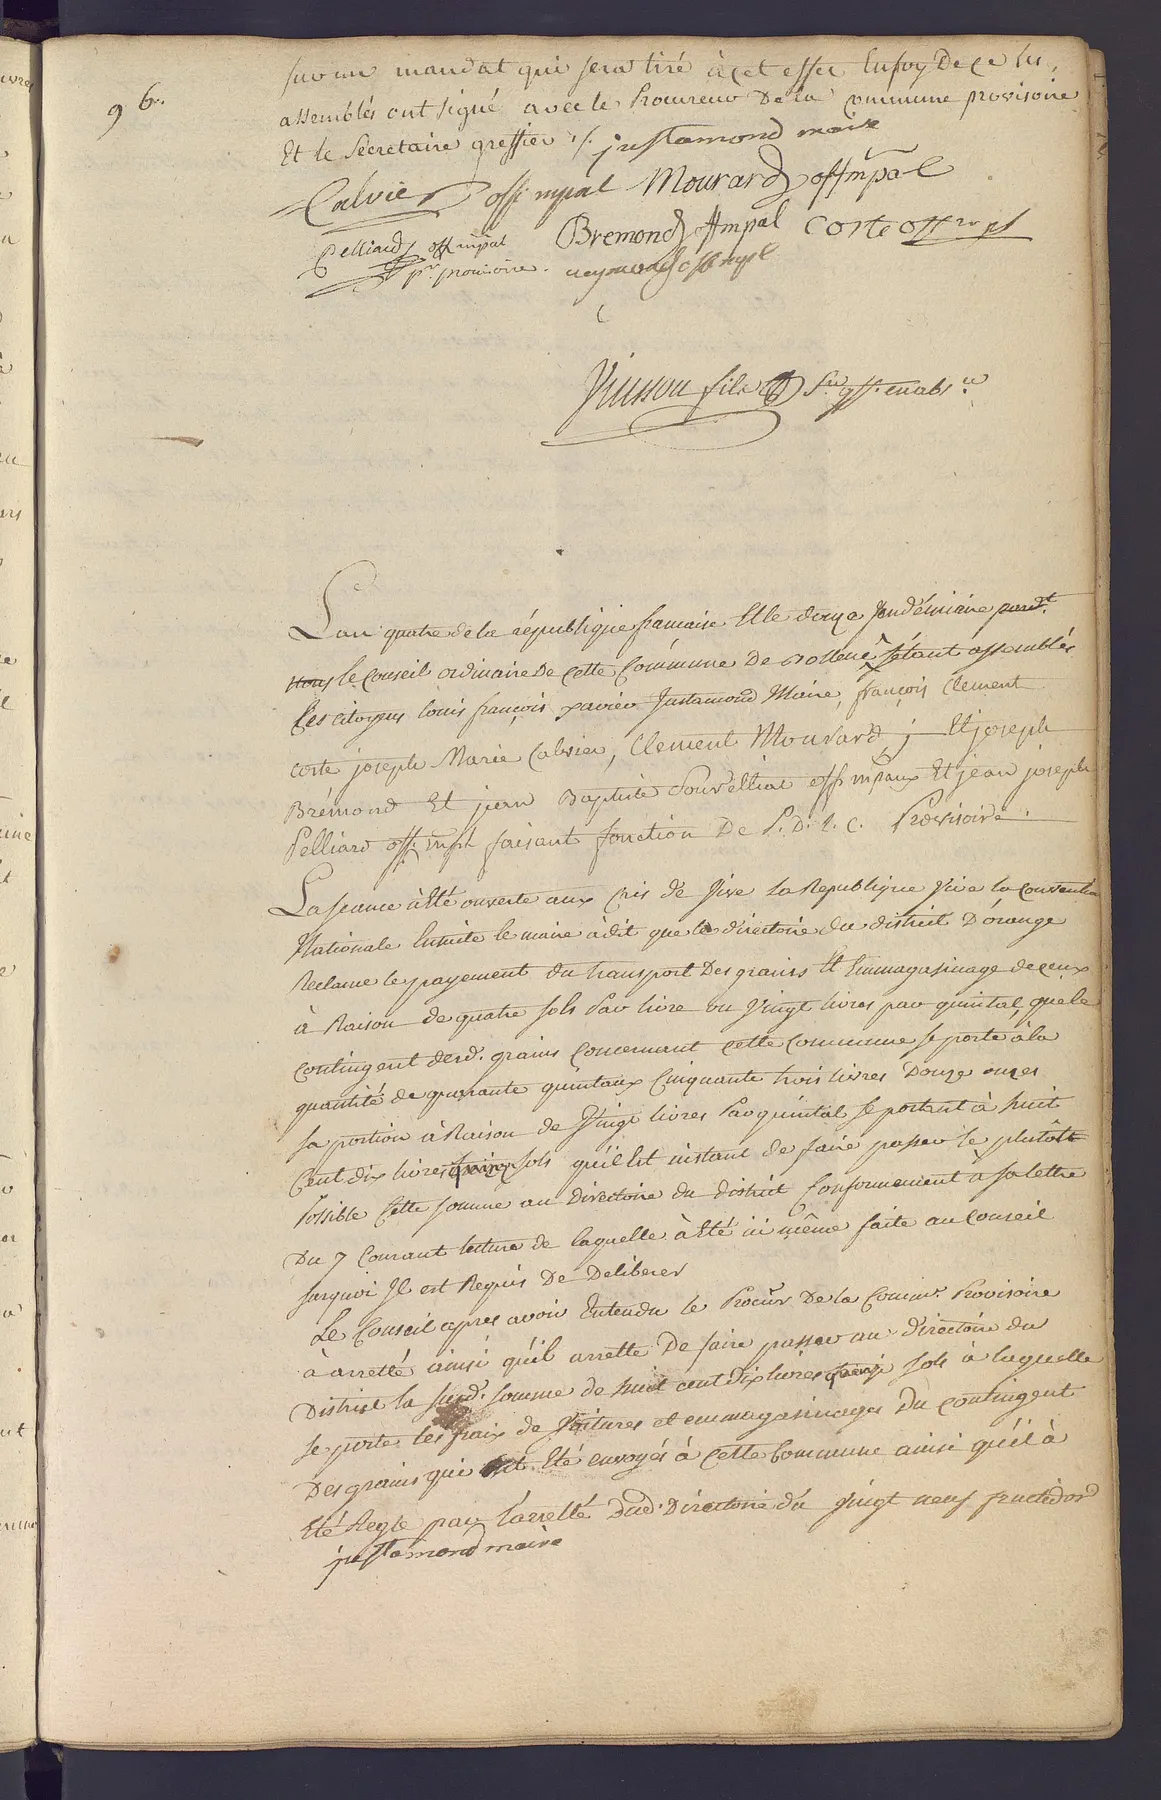 96.
sur un mandat qui sera tiré à cet effet En foy De ce les
assemblés ont signé avec le Procureur De la commune provisoire
Et le Secretaire greffier /. justamond maire
Calvier off mpal Mourard off mpal
Pelliard off mpal Bremond off mpal Corte off mpl
pr. provisoire. off mpl
fils Sre gff. en abs.ce
L'an quatre de la république francaise Et le douze Vendémiaire
nous le Conseil ordinaire De cette Commune De Bollene s'étant assemblés
Les citoyens Louis françois xavier Justamond Maire, françois Clement
Corte joseph Marie Calvier, Clement Mourard, j Et joseph
Brémond Et jean Baptiste off mpaux Et jean joseph
Pelliard off. mpl faisant fonction De P. D. L. C. Provisoire.
La seance à été ouverte aux cris de Vive la Republique Vive la Convention
Nationale Ensuite le maire à dit que le directoire du district D'orange
Reclame le payement du transport Des grains Et Emmagasinage de ceux
à Raison de quatre sols Par livre ou Vingt livres par quintal, que le
contingent desd. grains Concernant cette Commune se porte à la
quantité de quarante quintaux Cinquante trois livres Douze onces
sa portion à Raison de Vingt livres Par quintal se portent à huit
Cent dix livres quinze sols qu'il Est instant de faire passer le plutôt
Possible Cette somme au Directoire du district Conformement à sa lettre
Du 7 Courant lecture de laquelle à été ici même faite au Conseil
surquoi Il est Requis De Deliberer
Le Conseil apres avoir Entendu le Procur De la Commu. Provisoire
à arretté ainsi qu'il arrette De faire passer au directoire du
District la susd. somme de huit cent Dix livres quinze sols à laquelle
se porte les fraix de Voitures et emmagasinages Du Contingent
Des grains qui ont Eté envoyés à cette Commune ainsi qu'il à
Eté Regle par l'arretté Dud. Directoire du Vingt neuf fructidor
justamond maire